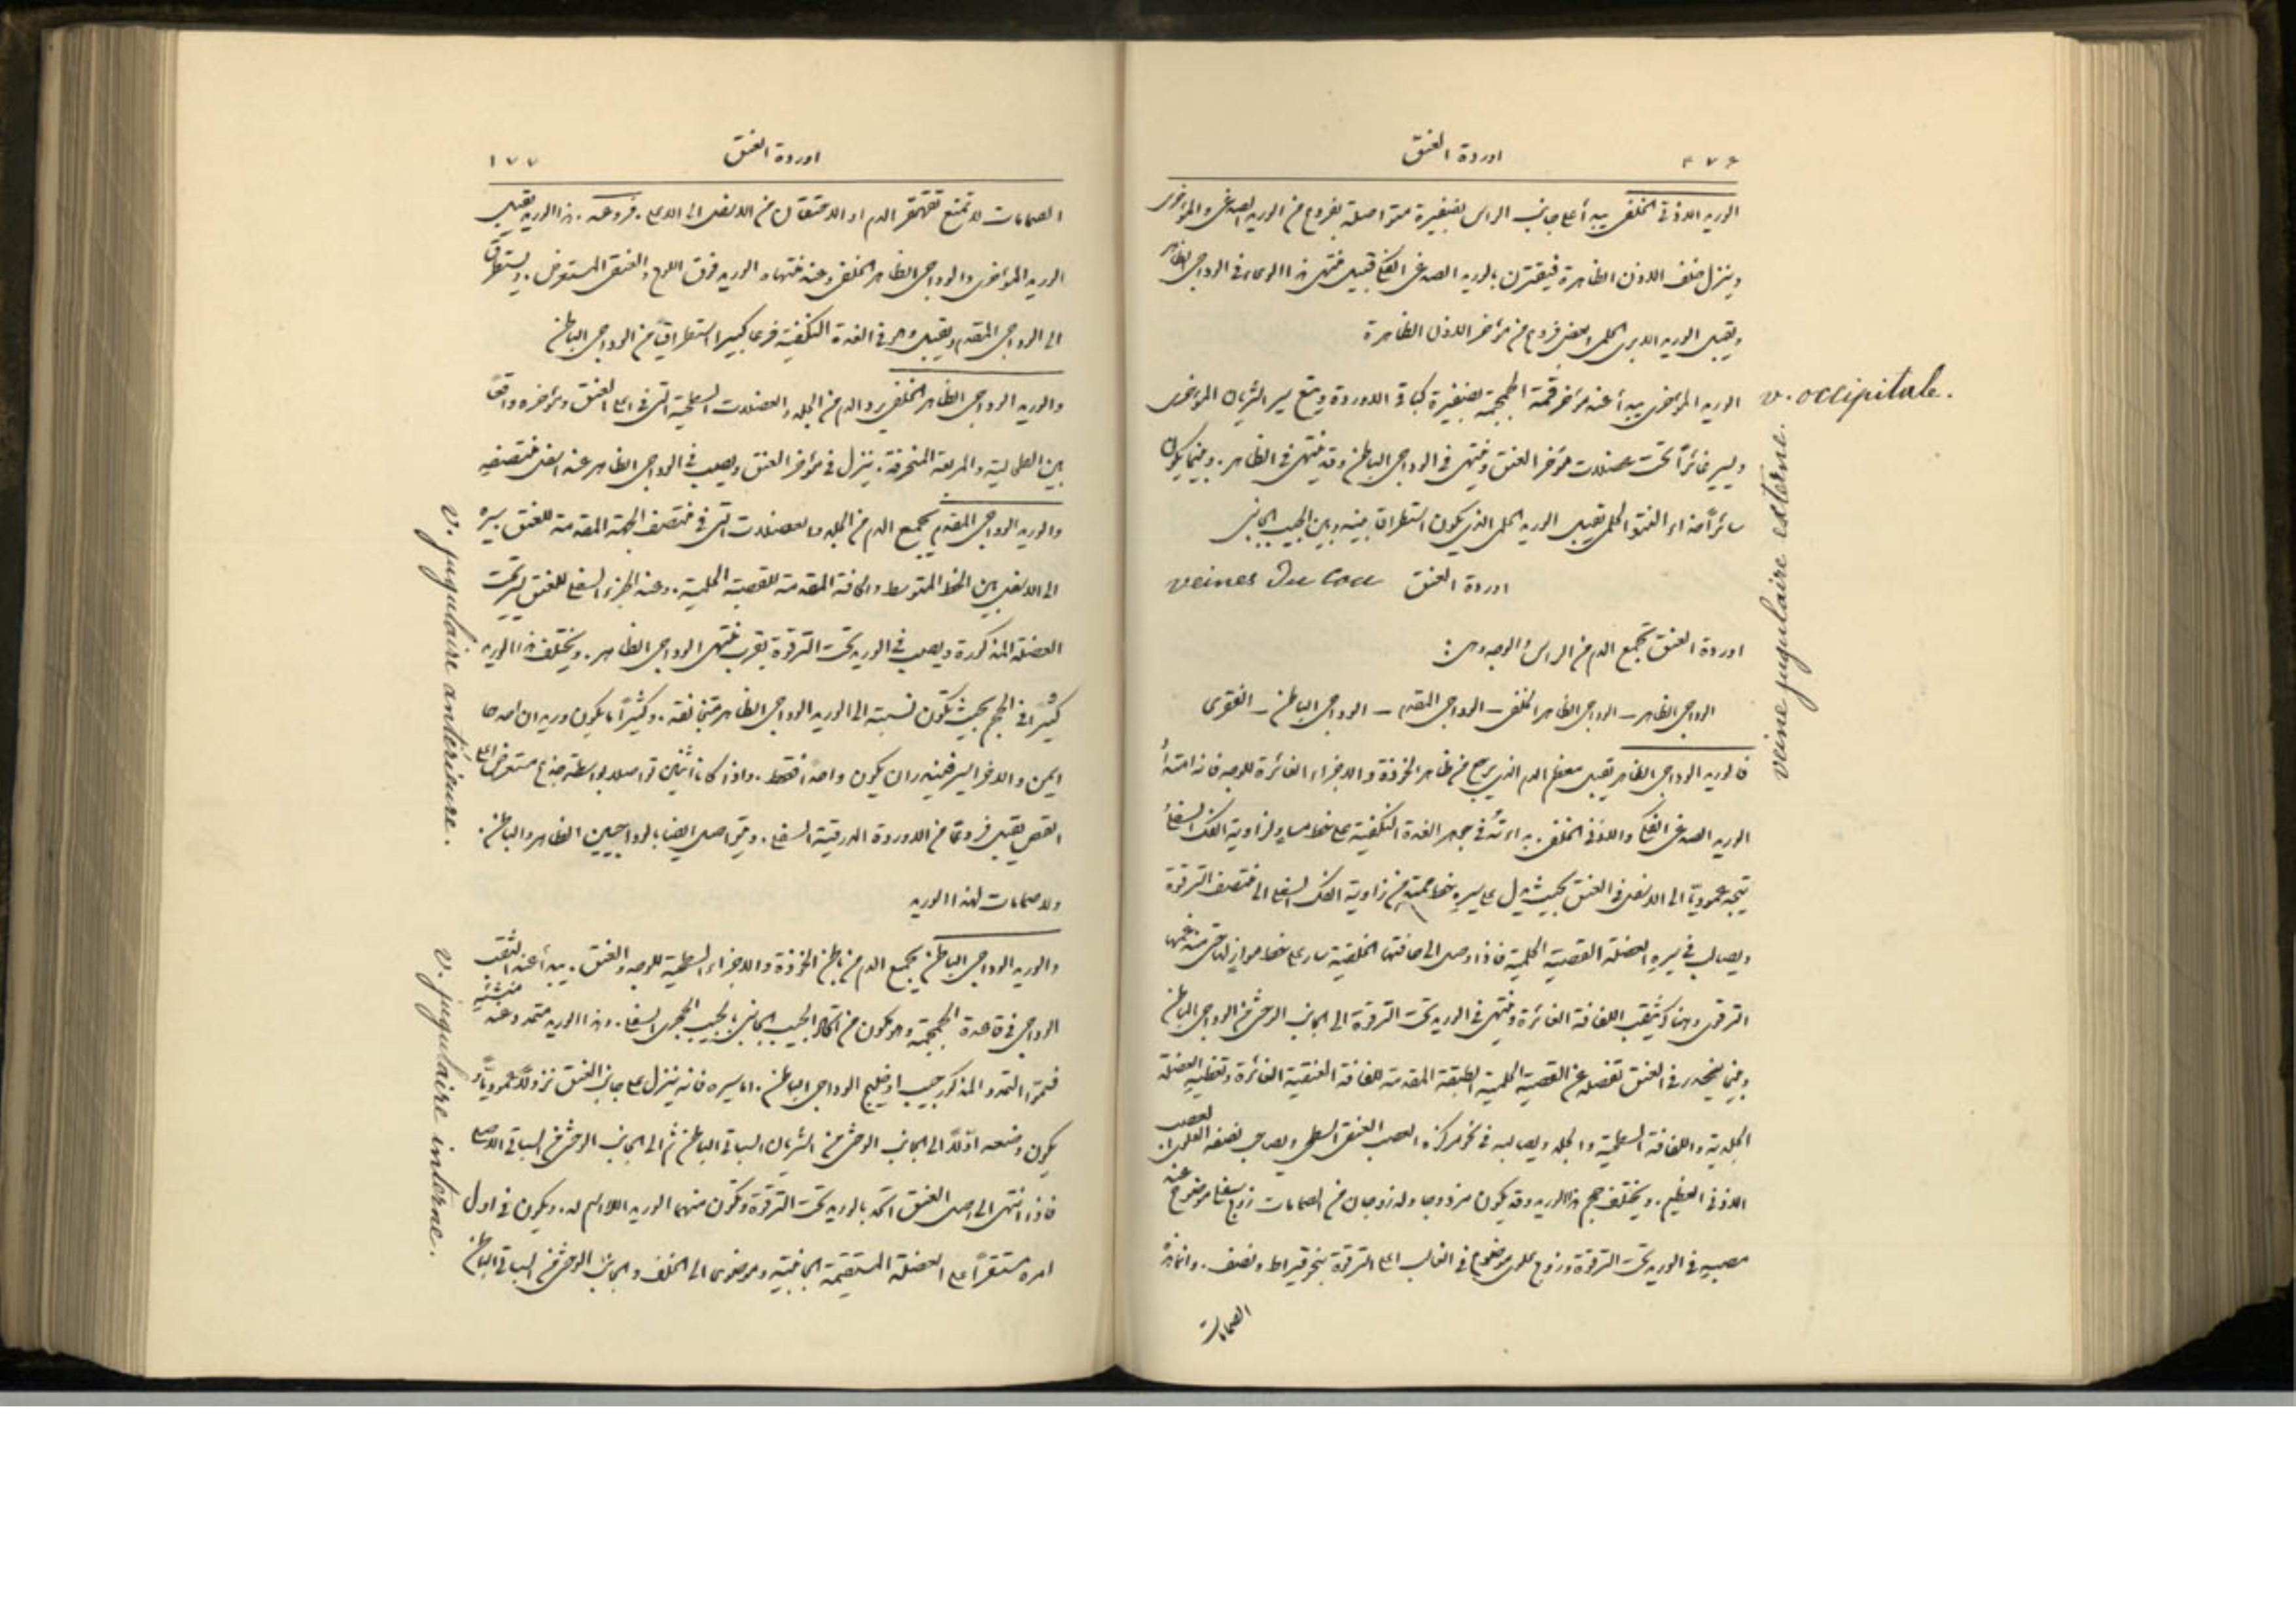 ٤٧٦ اوردة العنق
الوريد الاذني الخلفي يبدأ على جانب الراس بضفيرة متواصلة بفروع من الوريد الصدغي والمؤخري
وينزل خلف الاذن الظاهرة فيقترن بالوريد الصدغي الفكي قبيل منتهى هذا الوعاء في الوداجي الظاهر
ويقبل الوريد الابري الحلمي وبعض فروع من مؤخر الاذن الظاهرة
الوريد المؤخري يبدأ عند مؤخر قمة الجمجمة بضفيرة كباقي الاوردة ويتبع سير الشريان المؤخري
v. occipitale.
ويسير غائراً تحت عضلات مؤخر العنق وينتهي في الوداجي الباطن وقد ينتهي في الظاهر. وبينما يكون
سائراً حذاء النتوء الحلمي يقبل الوريد الحلمي الذي يكون استطراق بينه وبين الجيب الجانبي
اوردة العنق veines Du Cou
اوردة العنق تجمع الدم من الراس والوجه وهي:
الوداجي الظاهر – الوداجي الظاهر الخلفي – الوداجي المقدم – الوداجي الباطن – الفقري
veine jugulaire externe.
فالوريد الوداجي الظاهر يقبل معظم الدم الذي يرجع من ظاهر الخوذة والاجزاء الغائرة للوجه فانه امتداد
الوريد الصدغي الفكي والاذني الخلفي. بداءته في جوهر الغدة النكفية على خط مساوٍ لزاوية الفك السفلي
يتجه عمودياً الى الاسفل في العنق بحيث يدل على سيره خط ممتد من زاوية الفك السفلي الى منتصف الترقوة
ويصالب في سيره العضلة القصية الحلمية فاذا وصل الى حافتها الخلفية سار على خط موازٍ لها حتى منغمها
الترقوي وهناك يثقب اللفافة الغائرة وينتهي في الوريد تحت الترقوة الى الجانب الوحشي من الوداجي الباطن
وبينما ينحدر في العنق تفصله عن القصية الحلمية الطبقة المقدمة للفافة العنقية الغائرة وتغطيه العضلة
الجلدية واللفافة السطحية والجلد ويصالبه في نحو مركزه العصب العنقي السطحي ويصاحب نصفه العلوي العصب
الاذني العظيم. ويختلف حجم هذا الوريد وقد يكون مزدوجاً وله زوجان من الصمامات زوج سفلي موضوع عند
مصبه في الوريد تحت الترقوة وزوج علوي موضوع في الغالب اعلى الترقوة بنحو قيراط ونصف. وانما هذه
الصمامات
اوردة العنق ١٧٧
الصمامات لا تمنع تقهقر الدم او الاحتقان من الاسفل الى الاعلى. فروعه. هذا الوريد يقبل
الوريد المؤخري والوداجي الظاهر الخلفي وعند منتهاه الوريد فوق اللوح والعنقي المستعرض. ويستطرق
الى الوداجي المقدم ويقبل وهو في الغدة النكفية فرعاً كبيراً استطراقياً من الوداجي الباطن
والوريد الوداجي الظاهر الخلفي يرد الدم من الجلد والعضلات السطحية التي في اعلى العنق ومؤخره واقعاً
بين الطحالية والمربعة المنحرفة. ينزل في مؤخر العنق ويصب في الوداجي الظاهر عند اسفل منتصفه
والوريد الوداجي المقدم يجمع الدم من الجلد والعضلات التي في منتصف الجهة المقدمة للعنق سيره
الى الاسفل بين الخط المتوسط والحافة المقدمة للقصية الحلمية. وعند الجزء السفلي للعنق يمر تحت
v. jugulaire antérieure.
العضلة المذكورة ويصب في الوريد تحت الترقوة بقرب منتهى الوداجي الظاهر. ويختلف هذا الوريد
كثيراً في الحجم بحيث تكون نسبته الى الوريد الوداجي الظاهر متخالفة. وكثيراً ما يكون وريدان احدهما
ايمن والاخر ايسر فيندر ان يكون واحداً فقط. واذا كانا اثنين تواصلا بواسطة جذع مستعرض اعلى
القص يقبل فروعاً من الاوردة الدرقية السفلى. ويتواصل ايضاً بالوداجيين الظاهر والباطن.
ولا صمامات لهذا الوريد
والوريد الوداجي الباطن يجمع الدم من باطن الخوذة والاجزاء السطحية للوجه والعنق. يبدأ عند الثقب
الوداجي في قاعدة الجمجمة وهو يكون من اتحاد الجيب الجانبي بالجيب الحجري السفلي. وهذا الوريد متمدد عند منشئه
v. jugulaire interne.
فسمي التمدد المذكور جيب او خليج الوداجي الباطن. اما سيره فانه ينزل على جانب العنق نزولاً عمودياً و
يكون وضعه اولاً الى الجانب الوحشي من الشريان السباتي الباطن ثم الى الجانب الوحشي من السباتي الاصلي
فاذا انتهى الى اصل العنق اتحد بالوريد تحت الترقوة وتكون منهما الوريد اللااسم له. ويكون في اول
امره مستقراً على العضلة المستقيمة الجانبية وموضوعاً الى الخلف والجانب الوحشي من السباتي الباطن